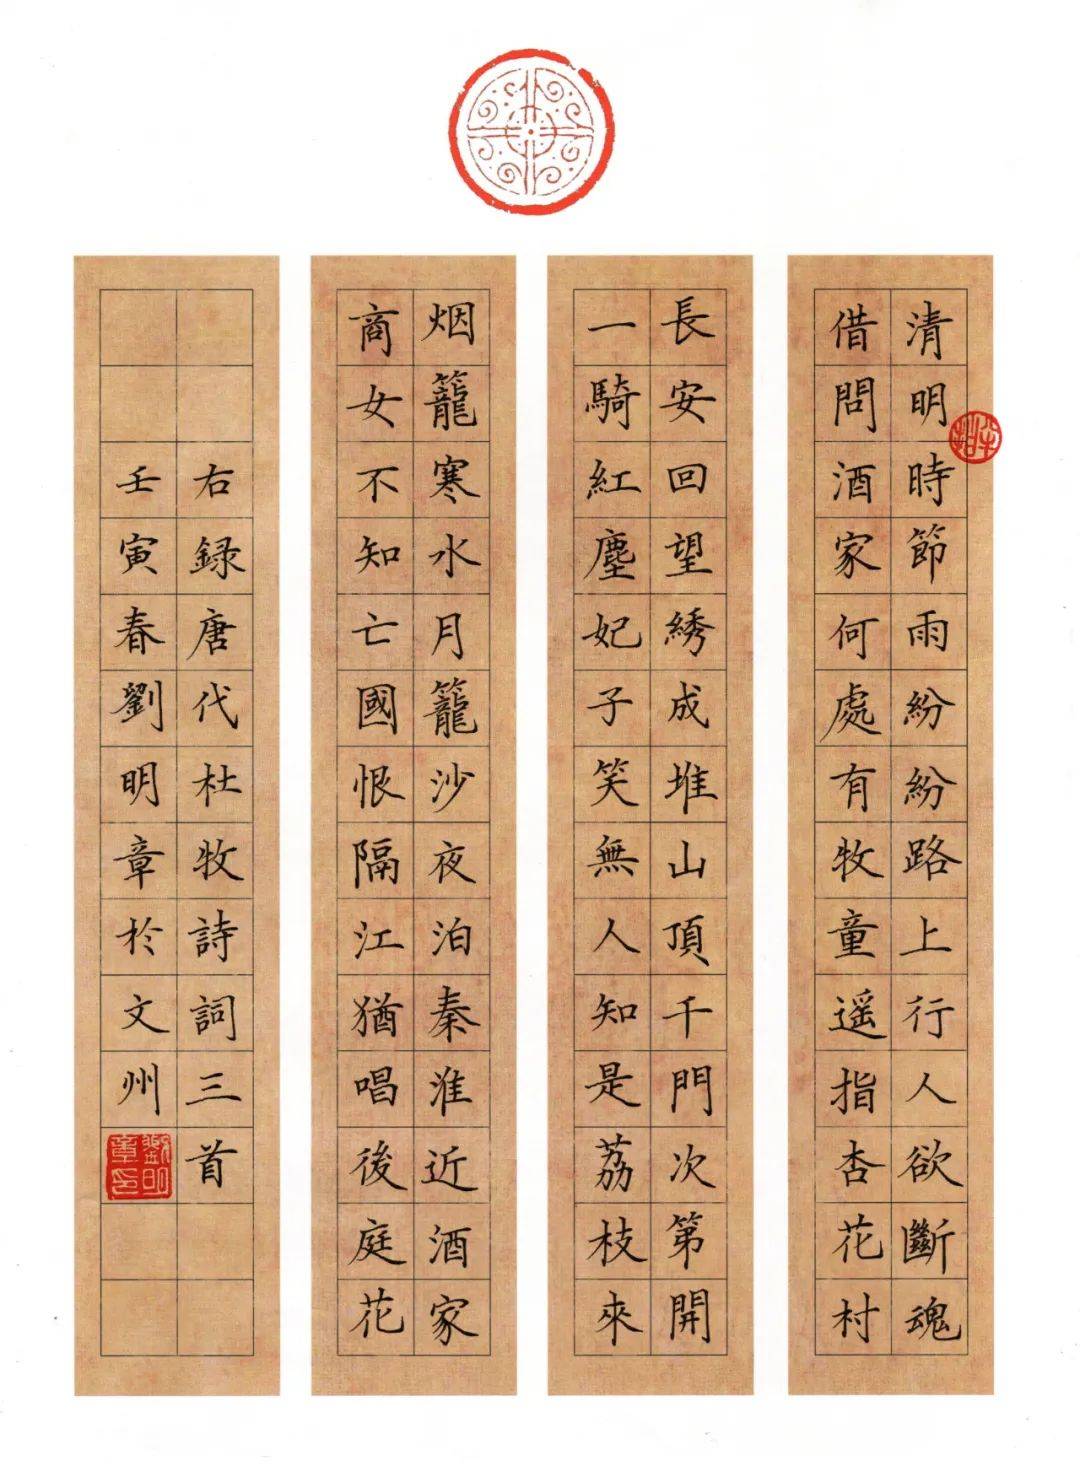 清明時節雨紛紛路上行人欲斷魂
借問酒家何處有牧童遥指杏花村
長安回望綉成堆山頂千門次第開
一騎紅塵妃子笑無人知是荔枝來
烟籠寒水月籠沙夜泊秦淮近酒家
商女不知亡國恨隔江猶唱後庭花
右録唐代杜牧詩詞三首
壬寅春劉明章於文州
劉明章印